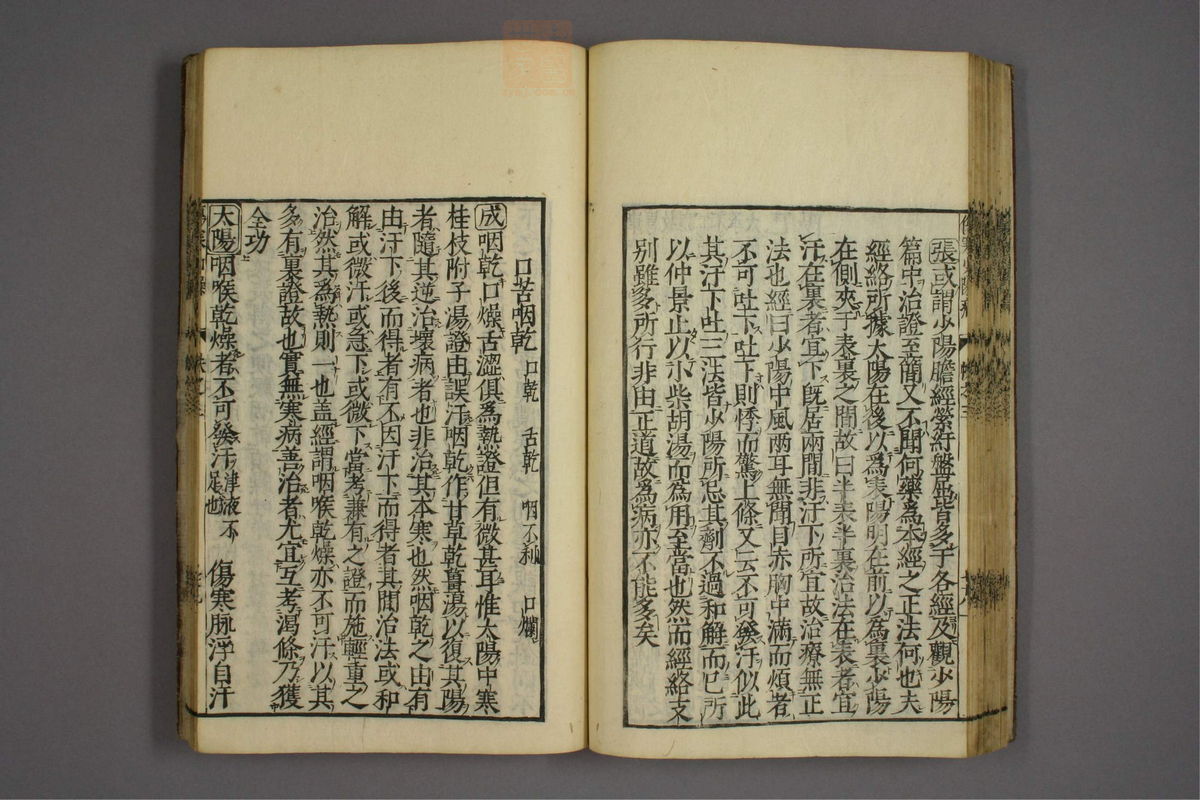 張或謂少陽膽經縈紆盤屈皆多于各經及觀少陽
篇中治證至簡又不聞何藥爲本經之正法何也夫
經絡所據太陽在後以爲表陽明在前以爲裏少陽
在側夾于表裏之間故曰半表半裏治法在表者宜
汗在裏者宜下既居兩間非汗下所宜故治療無正
法也經曰少陽中風兩耳無聞目赤胸中滿而煩者
不可吐下吐下則悸而驚上條又云不可發汗似此
其汗下吐三法皆少陽所忌其劑不過和解而已所
以仲景止以小柴胡湯而爲用至當也然而經絡支
別雖多所行非由正道故爲病亦不能多矣
口苦咽乾 口乾 舌乾 咽不利 口爛
成咽乾口燥舌澀俱爲熱證但有微甚耳惟太陽中寒
桂枝附子湯證由誤汗咽乾作甘草乾薑湯以復其陽
者隨其逆治壞病者也非治其本寒也然咽乾之由有
由汗下後而得者有不因汗下而得者其間治法或和
解或微汗或急下或微下當考兼有之證而施輕重之
治然其爲熱則一也蓋經謂咽喉乾燥亦不可汗以其
多有裏證故也實無寒病善治者尤宜互考渴條乃獲
全功
太陽咽喉乾燥者不可發汗津液不足也 傷寒脉浮自汗